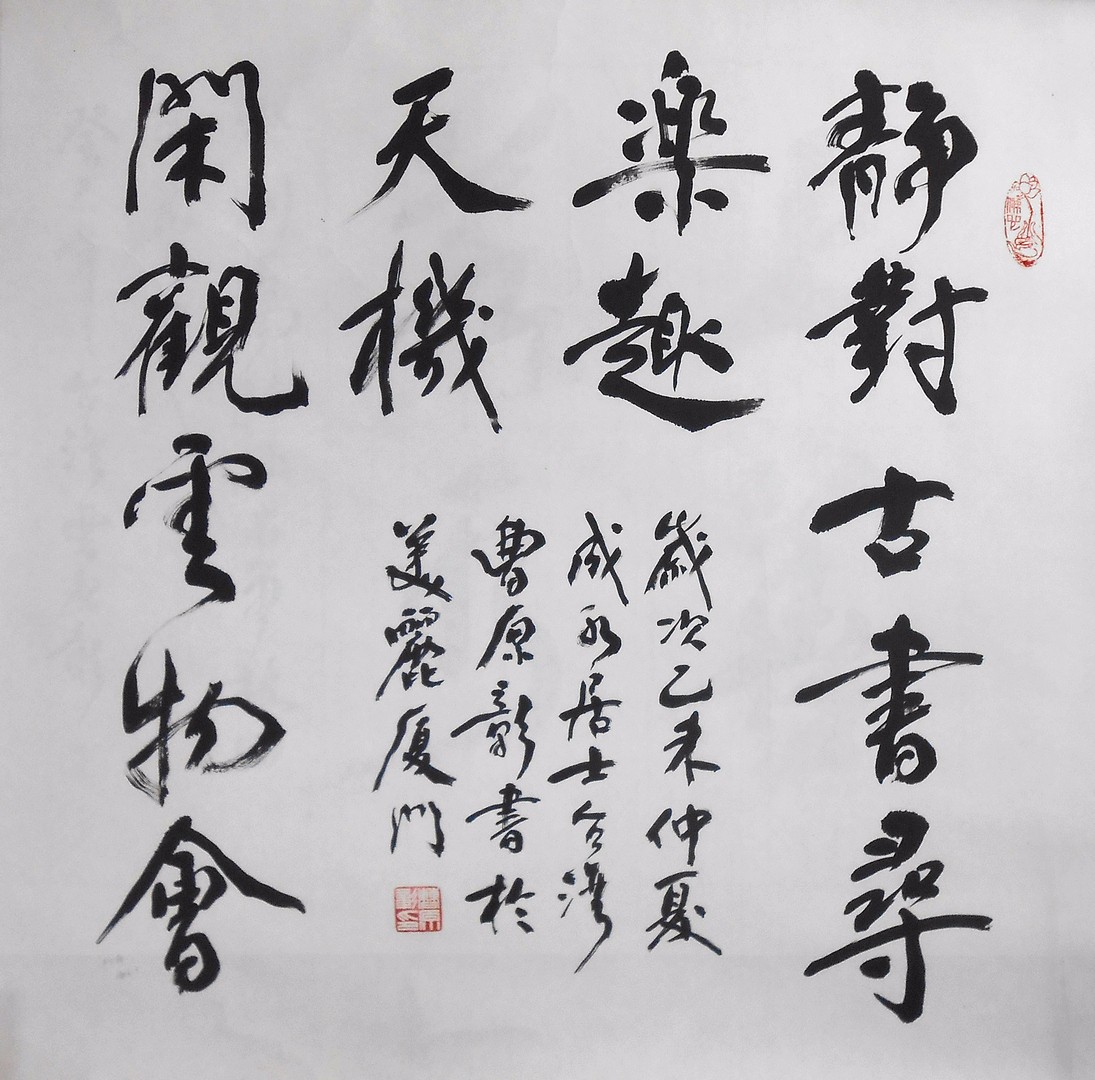 靜對古書尋
楽趣
閑觀雲物會
天機
歲次乙未仲夏
成永居士台灣
曹原彰書於
美麗厦門